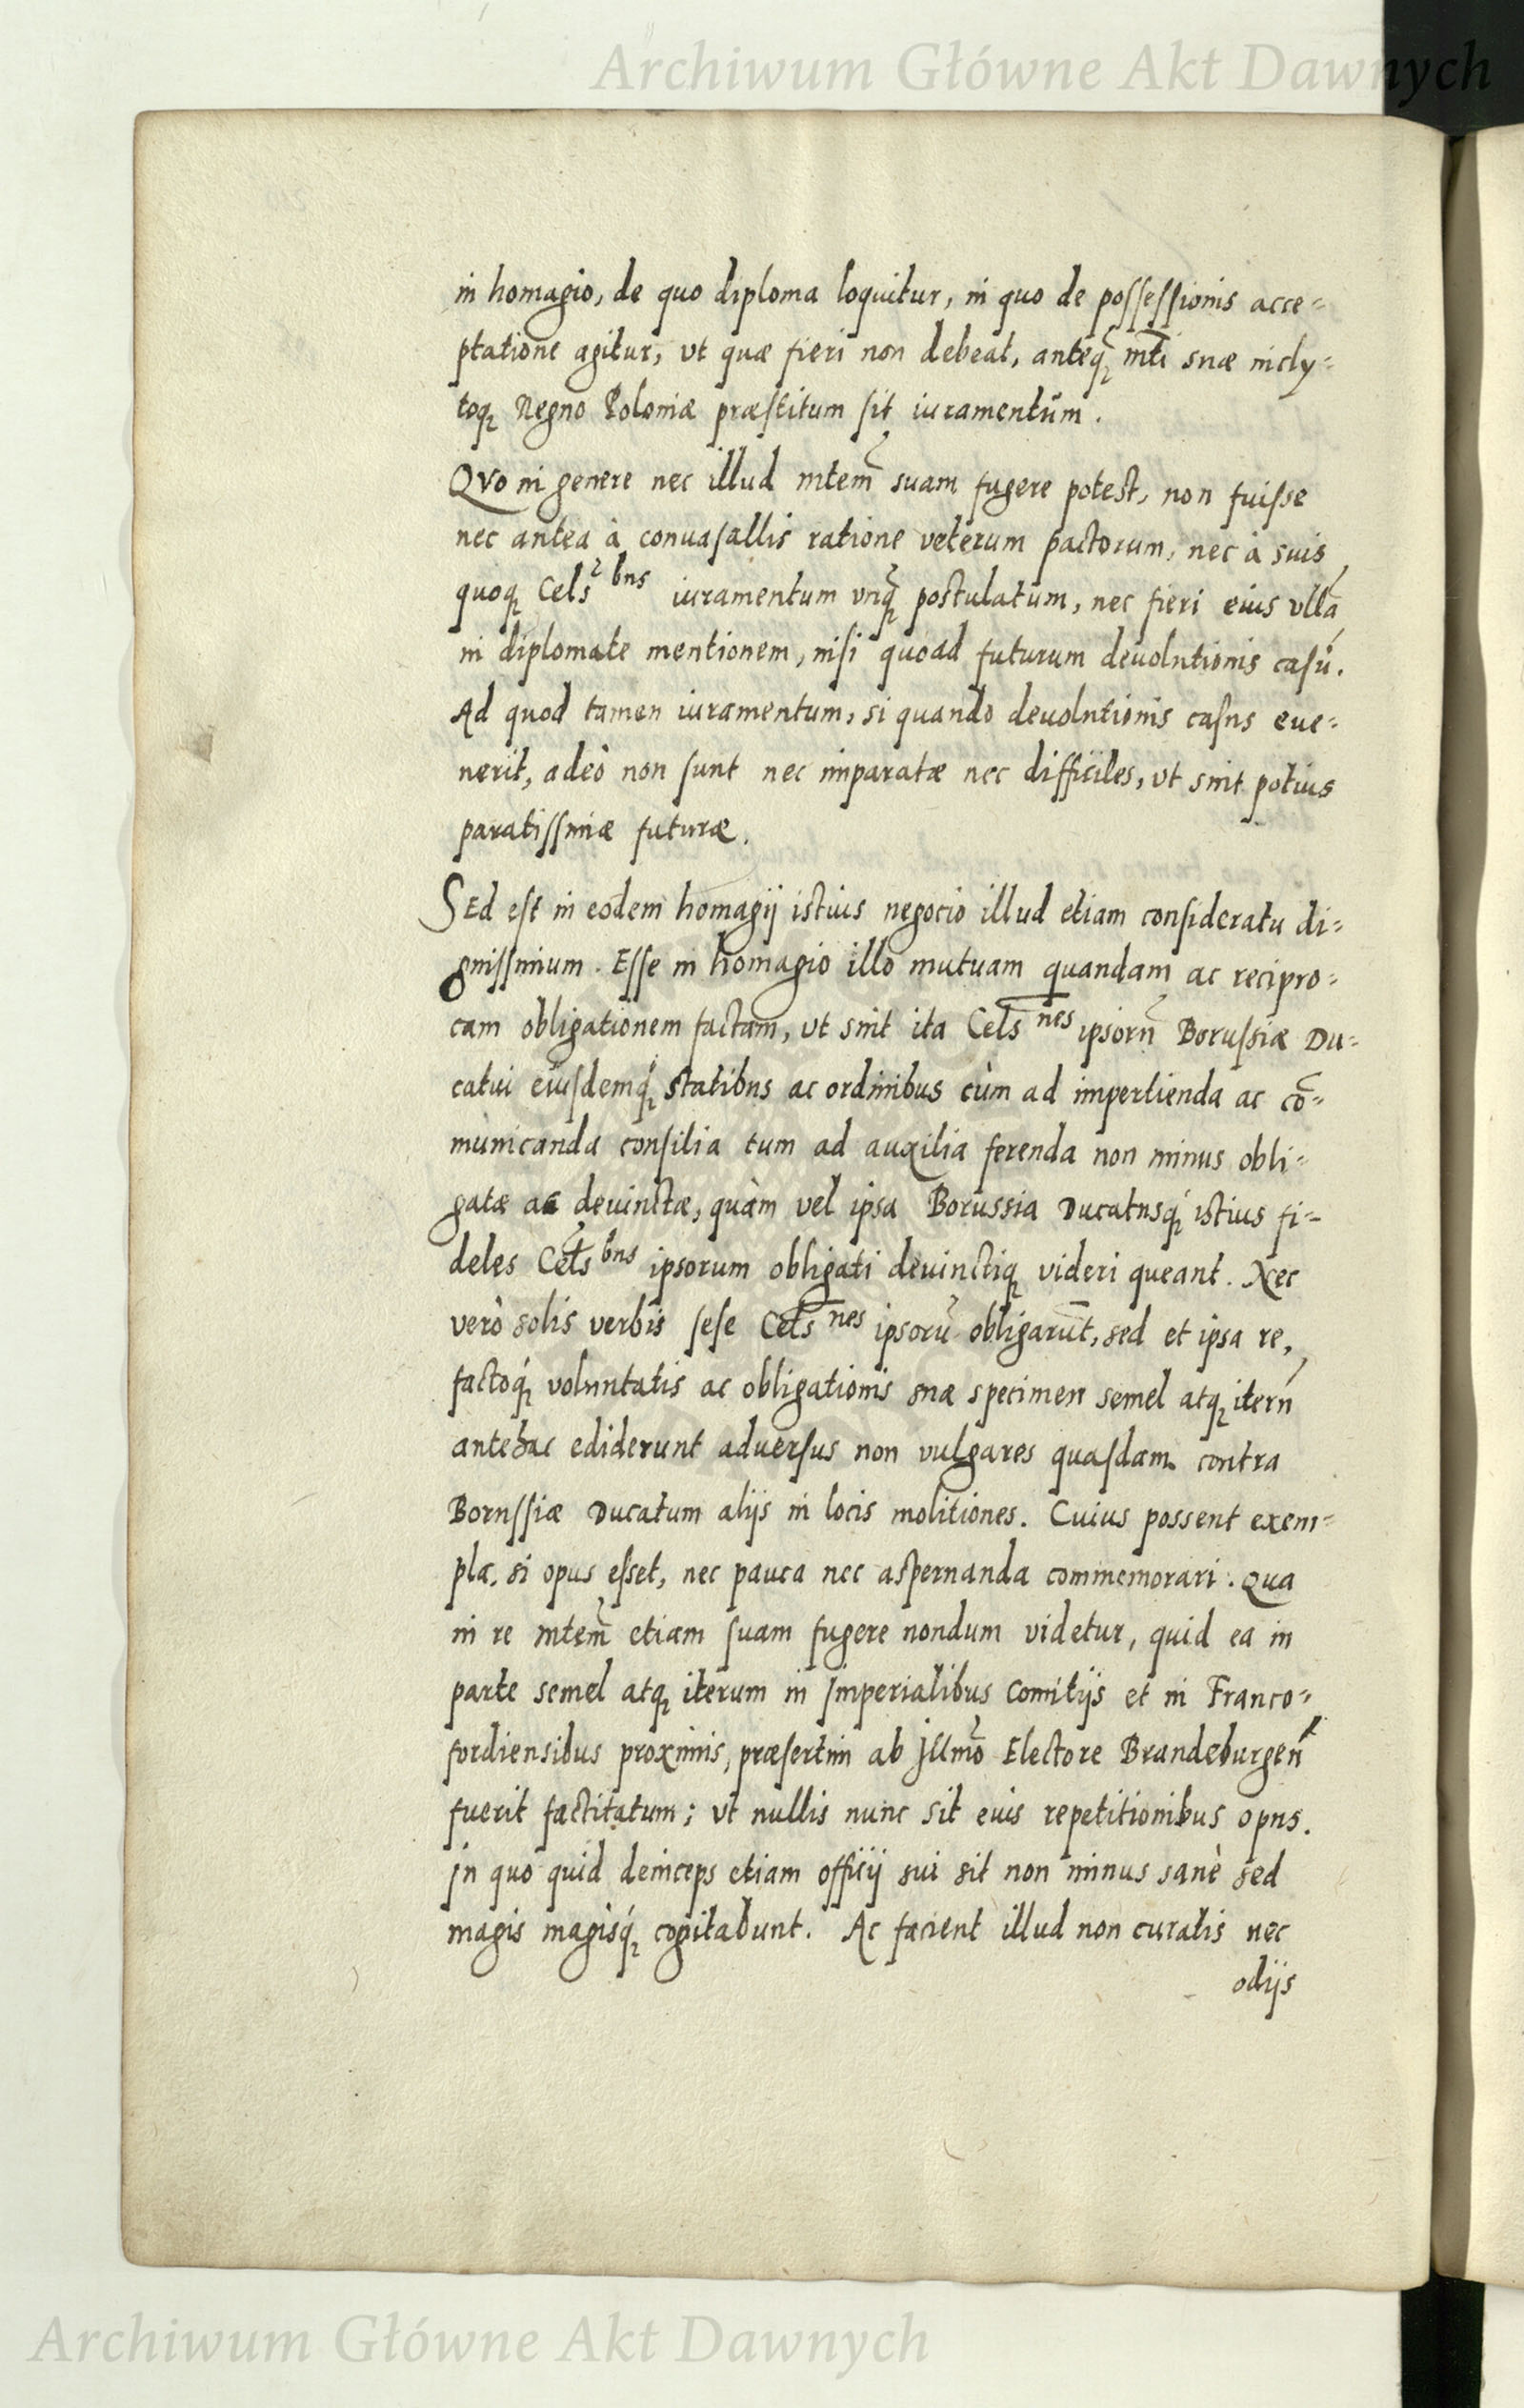 Archiwum Główne Akt Dawnych
in homagio, de quo diploma loquitur, in quo de possessionis acce-
ptatione agitur, vt quæ fieri non debeat, anteq̃ mti suæ incly-
toq Regno Poloniæ præstitum sit iuramentũm.
QVo in genere nec illud mtem̃ suam fugere potest, non fuisse
nec antea à conuasallis ratione veterum pactorum, nec à suis
quoq Cels bus iuramentum vnq̃ postulatum, nec fieri eius vllã
in diplomate mentionem, nisi quoad futurum deuolutionis casũ.
Ad quod tamen iuramentum, si quando deuolutionis casus eue-
nerit, adeò non sunt nec imparatæ nec difficiles, vt sint potius
paratissimæ futuræ.
SEd est in eodem homagij istius negocio illud etiam consideratu di-
gnissimum. Esse in homagio illo mutuam quandam ac recipro-
cam obligationem factam, vt sint ita Cels nes ipsorũ Borussiæ Du-
catui eiusdemq́ statibus ac ordinibus cùm ad impertienda ac cõ-
municanda consilia tum ad auxilia ferenda non minus obli-
gatæ ac deuinctæ, quàm vel ipsa Borussia Ducatusq́ istius fi-
deles Cels bus ipsorum obligati deuinctiq videri queant. Nec
verò solis verbis sese Cels nes ipsorũ obligarunt, sed et ipsa re,
factoq́ voluntatis ac obligationis suæ specimen semel atq iterũ
antehac ediderunt aduersus non vulgares quasdam contra
Borussiæ Ducatum alijs in locis molitiones. Cuius possent exem-
pla, si opus esset, nec pauca nec aspernanda commemorari. Qua
in re mtem̃ etiam suam fugere nondum videtur, quid ea in
parte semel atq iterum in Imperialibus Comitijs et in Franco-
fordiensibus proximis, præsertim ab Illmõ Electore Brandeburgeñ
fuerit factitatum; vt nullis nunc sit eius repetitionibus opus.
In quo quid deinceps etiam officij sui sit non minus sanè sed
magis magisq́ cogitabunt. Ac facient illud non curatis nec
odijs
Archiwum Główne Akt Dawnych